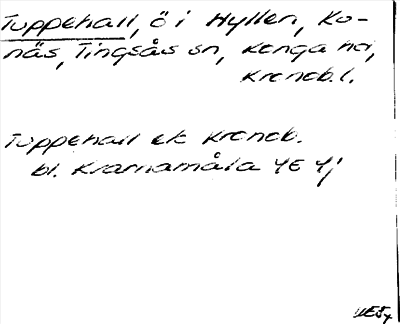 Tuppehall, ö i Hyllen, Ko-
näs, Tingsås sn, Konga hd,
Kronob. l.
Tuppehall ek Kronob.
bl. Kramamåla 4E 4j